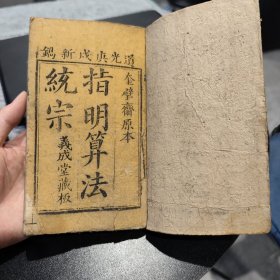 道光庚戌新鐫
金璧齋原本
指明算法
統宗
義成堂藏板